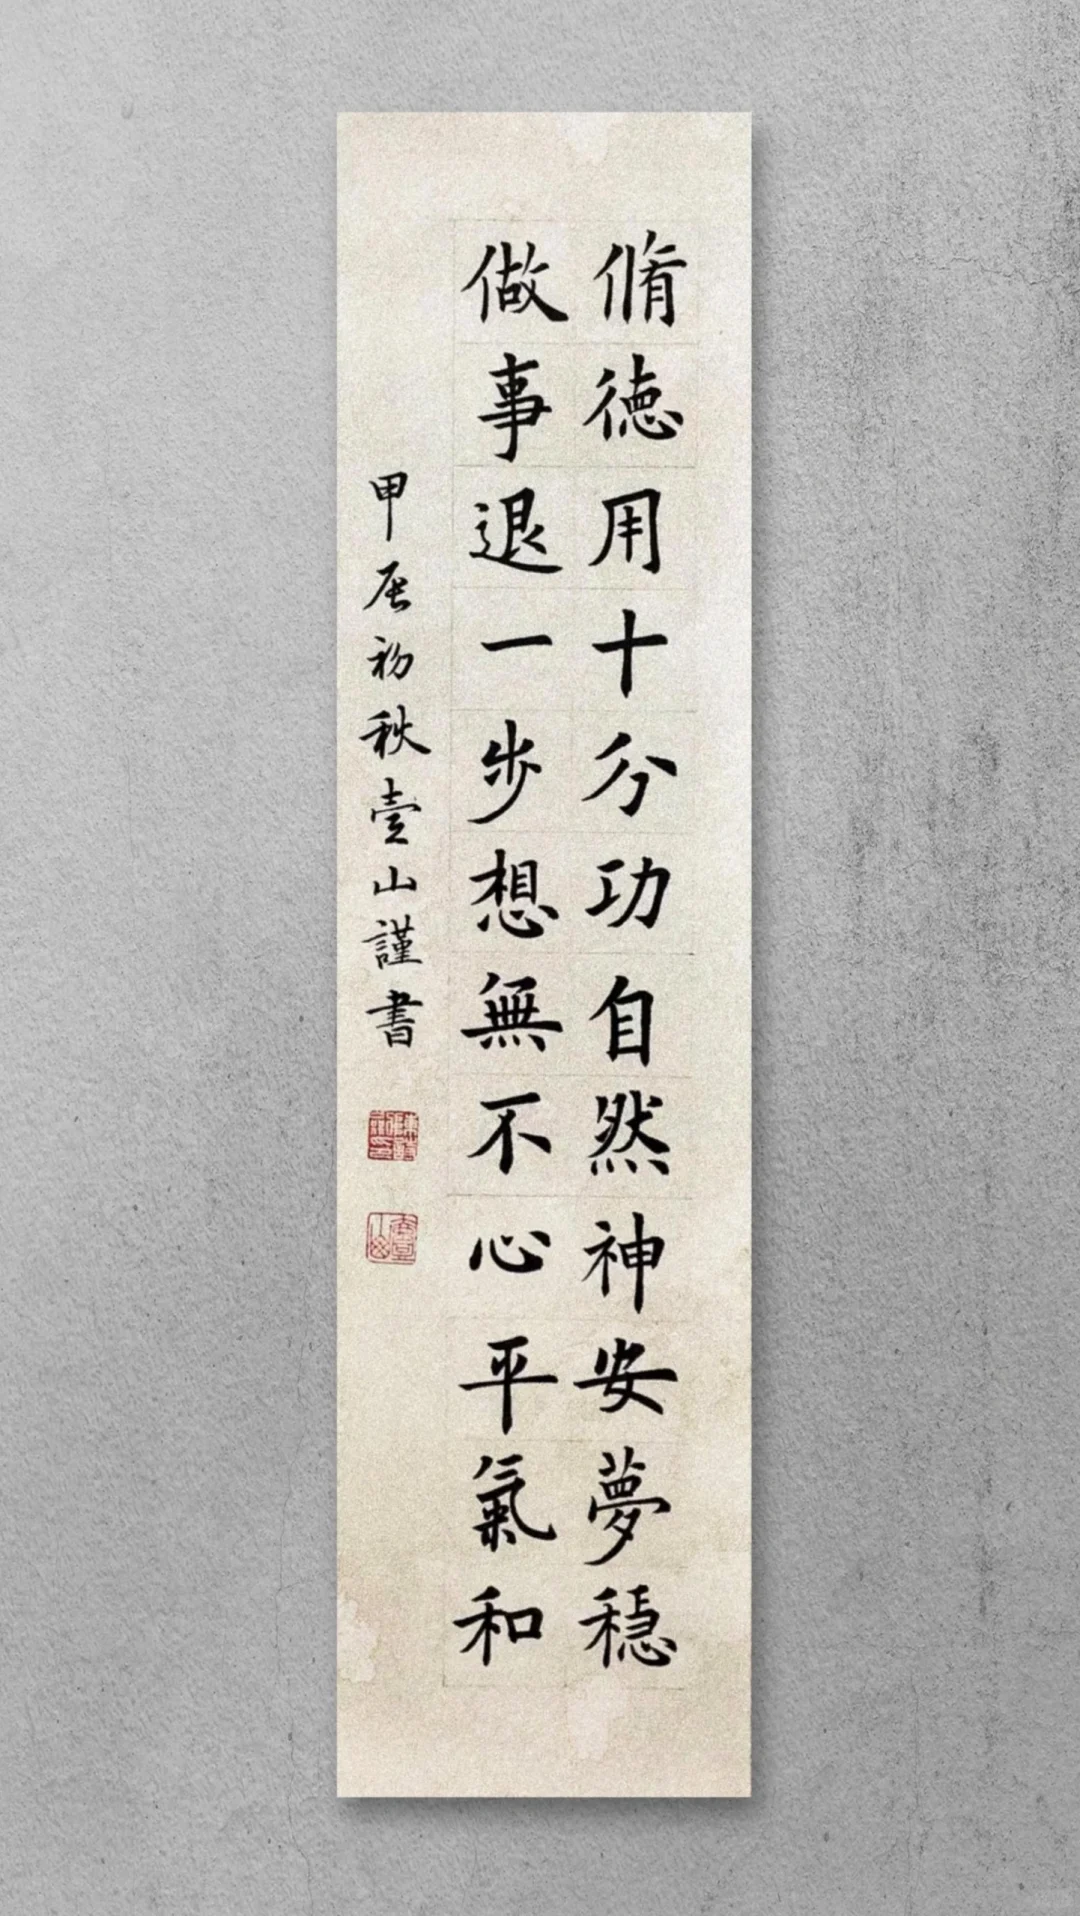 脩徳用十分功自然神安夢穏
做事退一步想無不心平氣和
甲辰初秋壹山謹書